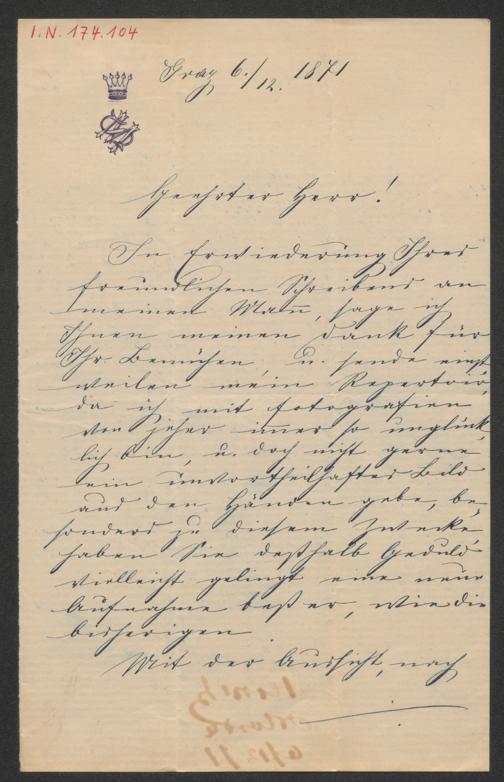 I.N. 174.104
Graz 6./12. 1871
Geehrter Herr!
In Erwiederung Ihres
freundlichen Schreibens an
meinen Mañ, sage ich
Ihnen meinen Dank für
Ihr Bemühen u. sende einst
weilen mein Repertoir,
da ich mit Fotografien
von jeher im̄er so unglück
lich bin, u. doch nicht gerne
ein unvortheilhaftes Bild
aus den Händen gebe, be-
sonders zu diesem Zwecke
haben Sie deßhalb Geduld
vielleicht gelingt eine neue
Aufnahme beßer, wie die
bisherigen.
Mit der Aussicht, nach